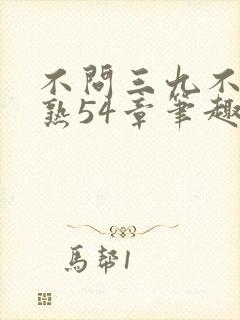 不問三九不
熟54章筆趣
馬幇1